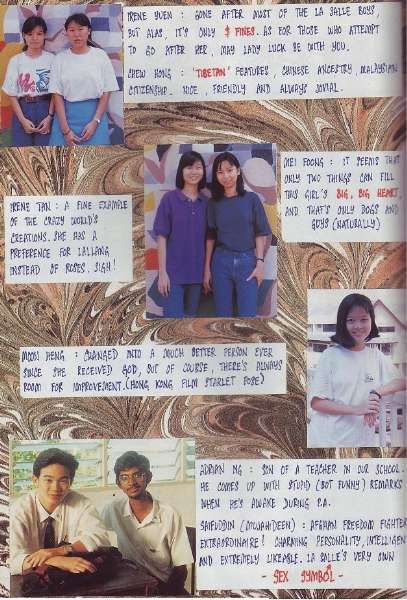 IRENE YUEN : GONE AFTER MOST OF THE LA SALLE BOYS,
BUT ALAS, IT'S ONLY $ FINES. AS FOR THOSE WHO ATTEMPT
TO GO AFTER HER, MAY LADY LUCK BE WITH YOU.
CHEW HONG : 'TIBETAN' FEATURES, CHINESE ANCESTRY, MALAYSIAN
CITIZENSHIP. NICE, FRIENDLY AND ALWAYS JOVIAL.
MEI FOONG : IT SEEMS THAT
ONLY TWO THINGS CAN FILL
THIS GIRL'S BIG, BIG HEART,
AND THAT'S ONLY DOGS AND
GUYS (NATURALLY)
IRENE TAN : A FINE EXAMPLE
OF THE CRAZY WORLD'S
CREATIONS. SHE HAS A
PREFERENCE FOR LALLANG
INSTEAD OF ROSES. SIGH!
MOON HENG : CHANGED INTO A MUCH BETTER PERSON EVER
SINCE SHE RECEIVED GOD, BUT OF COURSE, THERE'S ALWAYS
ROOM FOR IMPROVEMENT. (HONG KONG FILM STARLET POSE)
ADRIAN NG : SON OF A TEACHER IN OUR SCHOOL.
HE COMES UP WITH STUPID (BUT FUNNY) REMARKS
WHEN HE'S AWAKE DURING P.A.
SAIFUDDIN (MUJAHIDEEN) : AFGHAN FREEDOM FIGHTER
EXTRAORDINAIRE! CHARMING PERSONALITY, INTELLIGENT
AND EXTREMELY LIKEABLE. LA SALLE'S VERY OWN
- SEX SYMBOL -